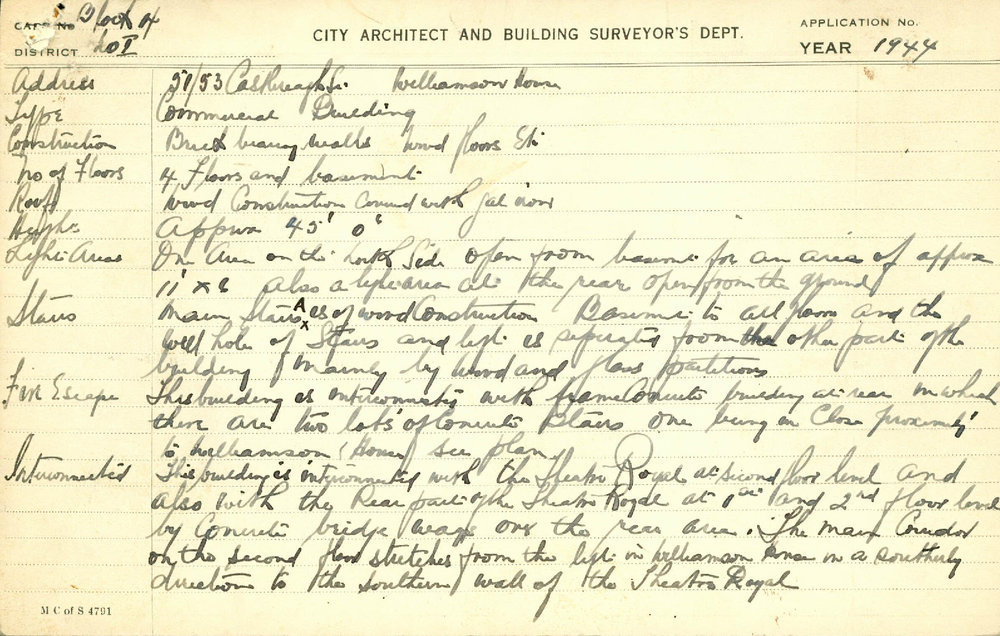 CARD No Block 4
DISTRICT Lot
CITY ARCHITECT AND BUILDING SURVEYOR'S DEPT.
APPLICATION No.
YEAR 1944
Address 51/53 Castlereagh St. Williamson House
Type Commercial Building
Construction Brick bearing walls Wood floors Etc
No of Floors 4 Floors and basement
Roof Wood Construction Covered with gal iron
Height Approx 45' 0"
Light Areas One Area on the North Side open from basemt for an area of approx
11' x 8 also a light area at the rear open from the ground
Stairs Main Stairs A is of wood Construction Basemt to all floors and the
well hole of Stairs and lift is separated from the other part of the
building mainly by wood and glass partitions
Fire Escape This building is interconnected with frame Concrete building at rear in which
there are two lots of Concrete Stairs one being in Close proximity
to Williamson House see plan
Interconnected This building is interconnected with the Theatre Royal at second floor level and
also with the Rear part of the Theatre Royal at 1st and 2nd floor level
by Concrete bridge ways over the rear area. The main Corridor
on the second floor stretches from the lift in Williamson House in a southerly
direction to the southern wall of the Theatre Royal
M C of S 4791